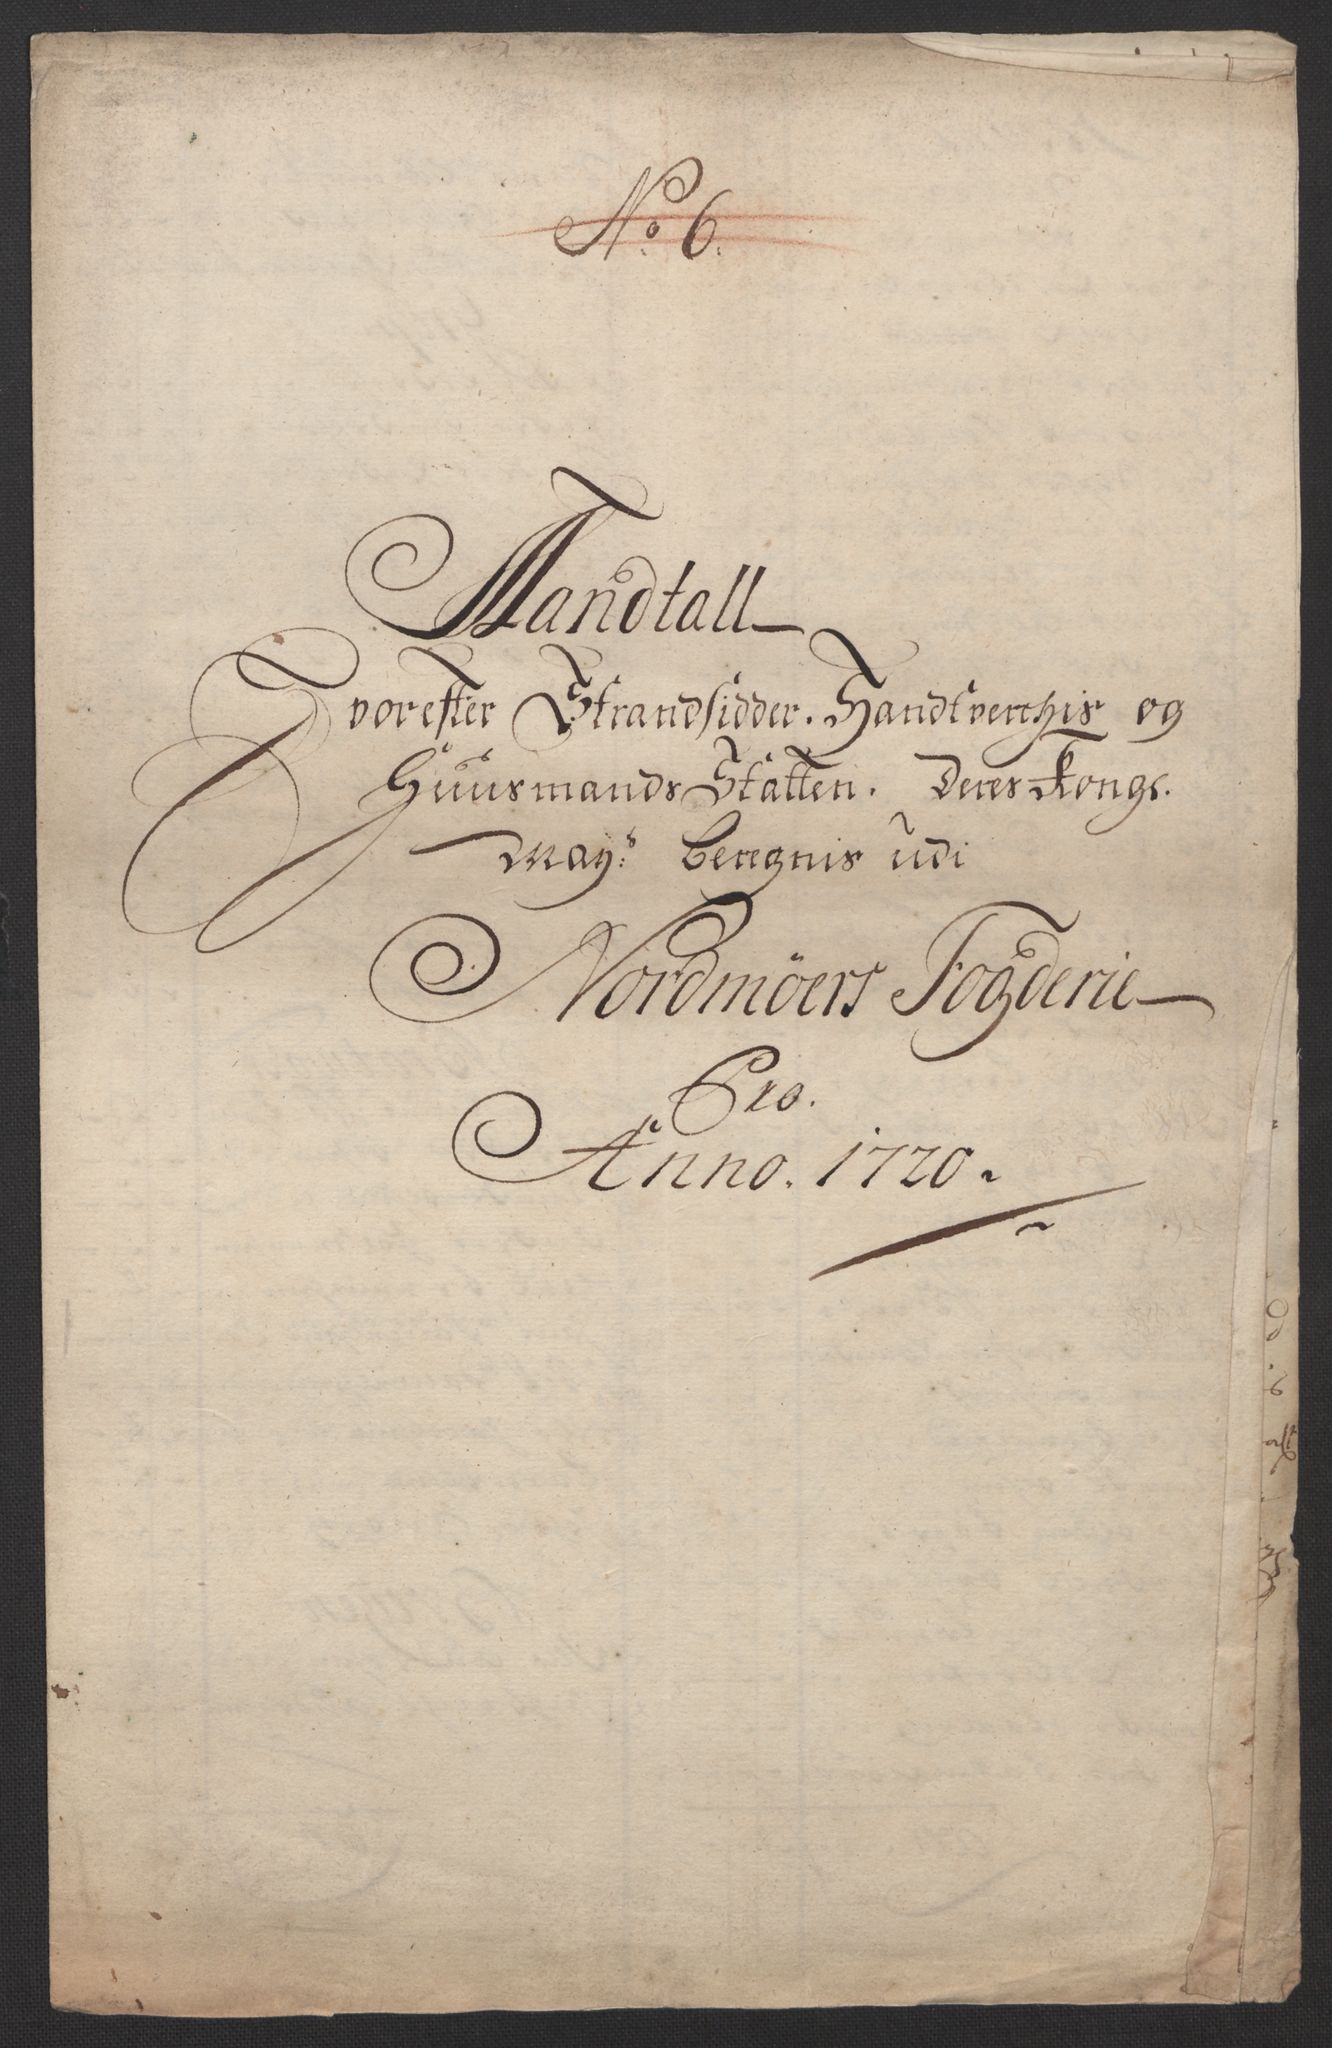 No 6.
Mandtall
Hvorefter Strandsidder. Handtverchis og
Huusmands Skatten. Deres Kongl.
Mayt: beregnis udi
Nordmöers Fogderie
Pro.
Anno. 1720.